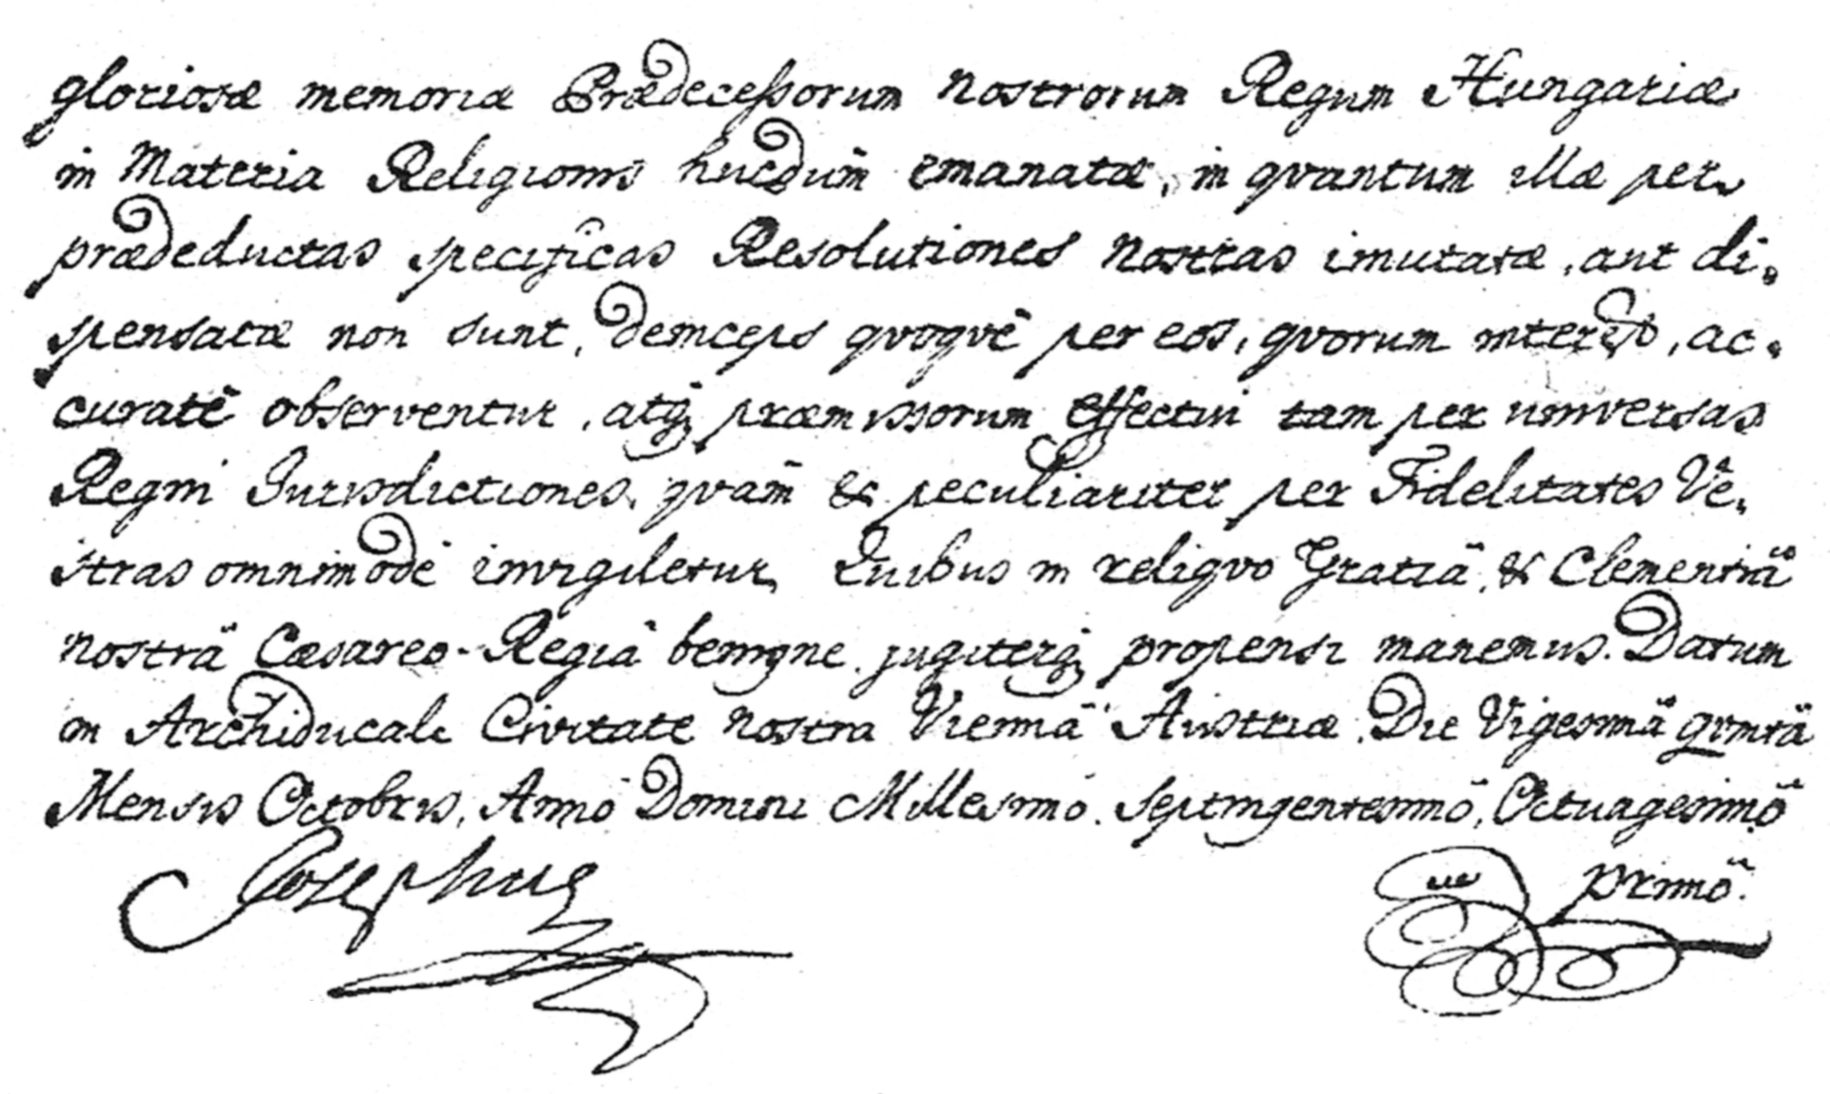 gloriosæ memoriæ Prædecessorum Nostrorum Regum Hungariæ
in Materia Religionis hucdum emanatæ, in qvantum illæ per
prædeductas specificas Resolutiones Nostras imutatæ, aut di-
spensatæ non sunt, deinceps qvoqve per eos, qvorum interest, ac-
curatè observentur, atq; præmissorum effectui tam per universas
Regni Jurisdictiones, qvam & peculiariter per Fidelitates Ve-
stras omnimodè invigiletur. Quibus in reliqvo Gratiâ, & Clementiâ
nostrâ Cæsareo-Regiâ benigne, jugiterq; propensi manemus. Datum
in Archiducali Civitate nostra Viennâ Austriæ, Die Vigesimâ qvintâ
Mensis Octobris, Anno Domini Millesimo, Septingentesimo, Octuagesimo
primo.
Josephus